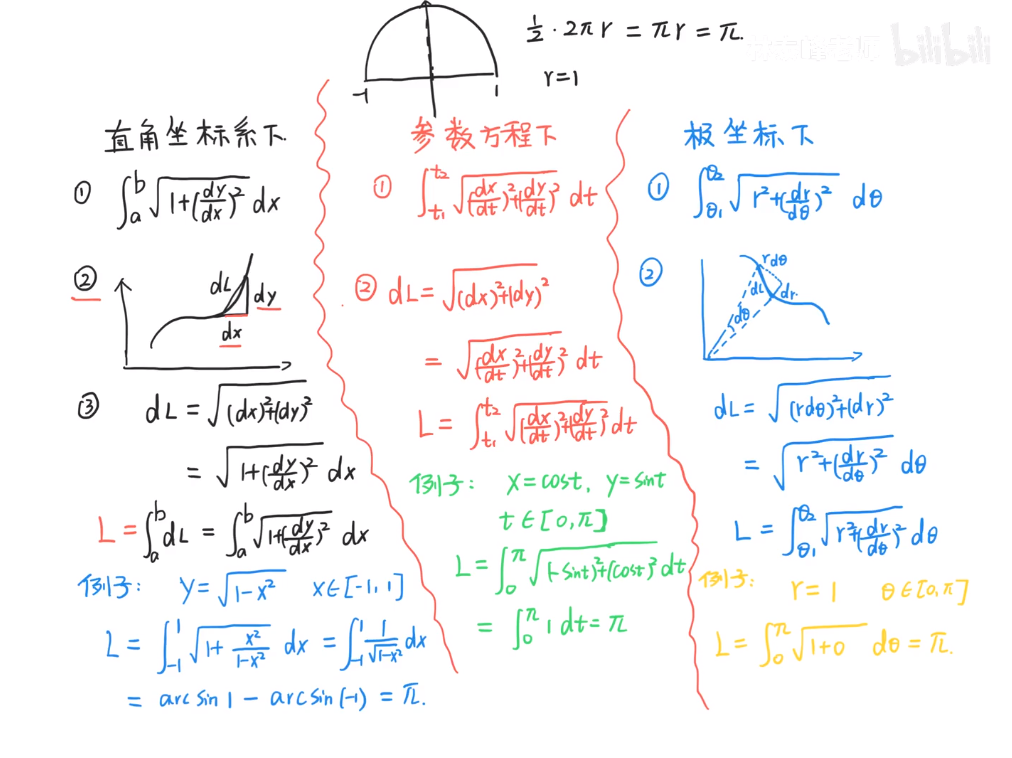 ½·2πr = πr = π.
r=1
-1 1
bilibili
直角坐标系下.
① ∫_a^b √(1+(dy/dx)²) dx
②
dL
dy
dx
③ dL = √((dx)²+(dy)²)
= √(1+(dy/dx)²) dx
L = ∫_a^b dL = ∫_a^b √(1+(dy/dx)²) dx
例子: y=√(1-x²) x∈[-1,1]
L = ∫_{-1}^1 √(1+x²/(1-x²)) dx = ∫_{-1}^1 1/√(1-x²) dx
= arcsin1 - arcsin(-1) = π.
参数方程下
① ∫_{t₁}^{t₂} √((dx/dt)²+(dy/dt)²) dt
② dL = √((dx)²+(dy)²)
= √((dx/dt)²+(dy/dt)²) dt
L = ∫_{t₁}^{t₂} √((dx/dt)²+(dy/dt)²) dt
例子: x=cost, y=sint
t∈[0,π]
L = ∫_0^π √((-sint)²+(cost)²) dt
= ∫_0^π 1 dt = π
极坐标下
① ∫_{θ₁}^{θ₂} √(r²+(dr/dθ)²) dθ
②
rdθ
dL
dr
dθ
dL = √((rdθ)²+(dr)²)
= √(r²+(dr/dθ)²) dθ
L = ∫_{θ₁}^{θ₂} √(r²+(dr/dθ)²) dθ
例子: r=1 θ∈[0,π]
L = ∫_0^π √(1+0) dθ = π.